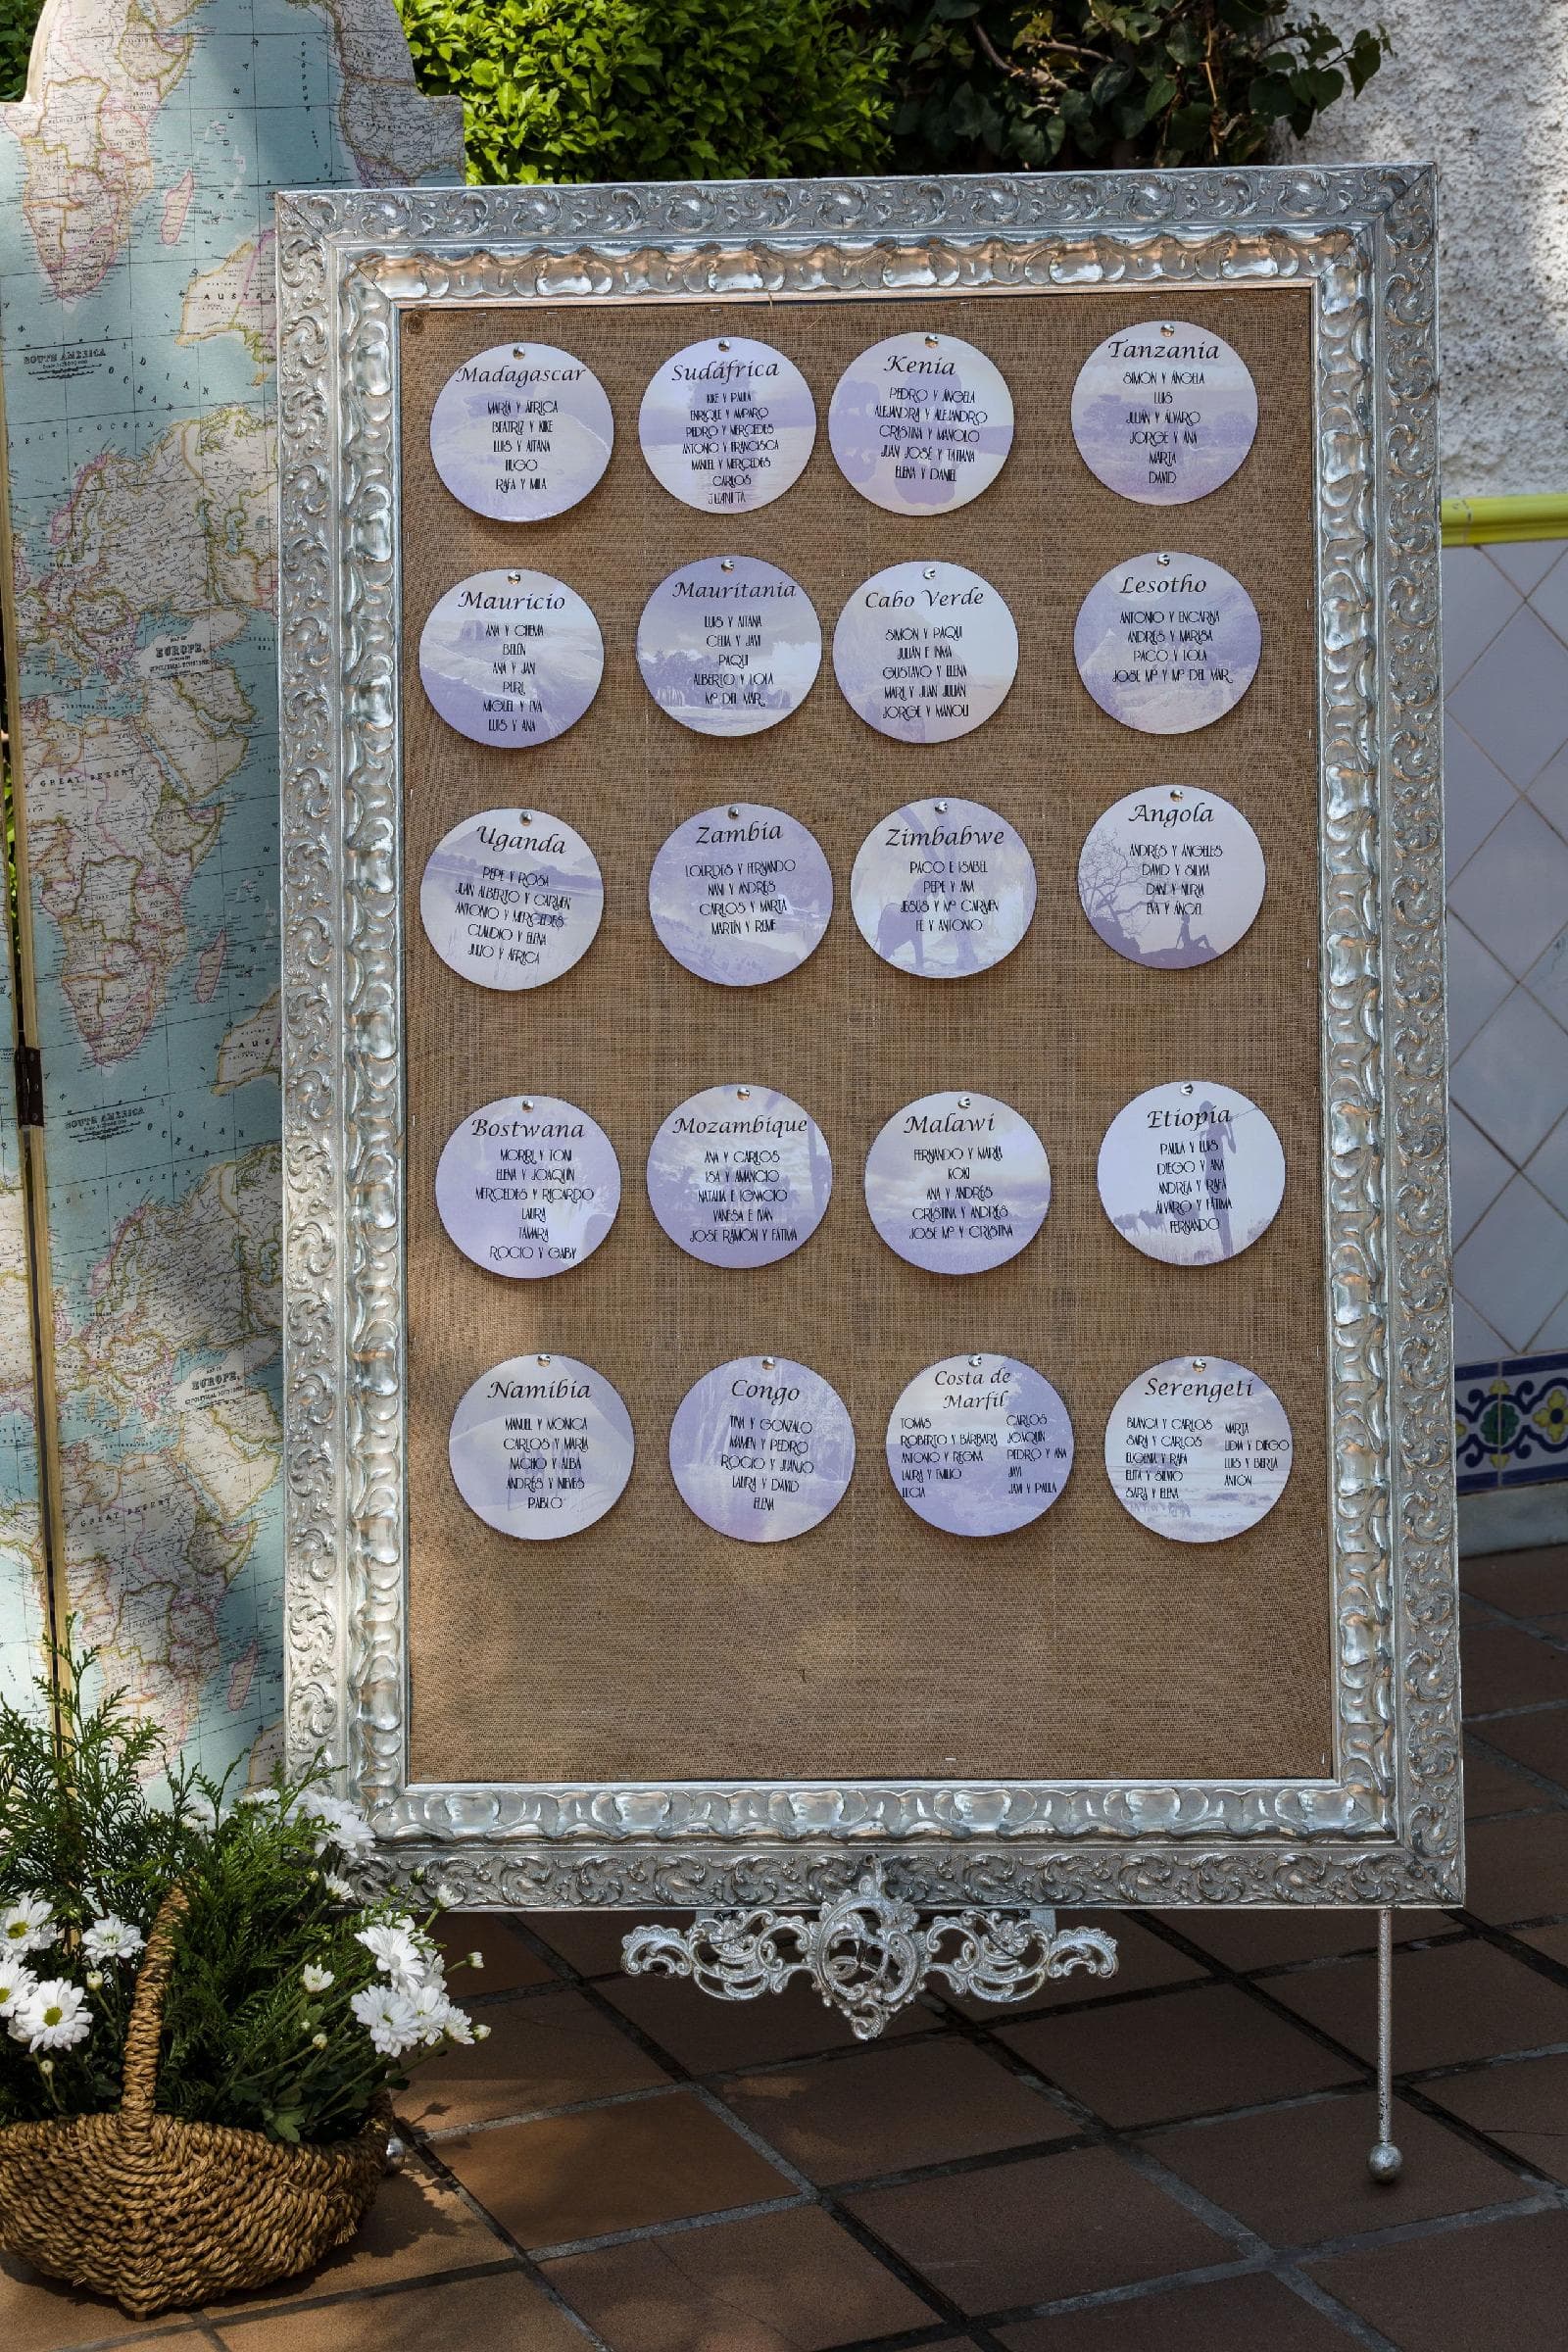 Madagascar
MARÍA Y ÁFRICA
BEATRIZ Y KIKE
LUIS Y AITANA
HUGO
RAFA Y MILA
Sudáfrica
KIKE Y PAULA
ENRIQUE Y AMPARO
PEDRO Y MERCEDES
ANTONIO Y FRANCISCA
MANUEL Y MERCEDES
CARLOS
JUANITA
Kenia
PEDRO Y ÁNGELA
ALEJANDRA Y ALEJANDRO
CRISTINA Y MANOLO
JUAN JOSÉ Y TATIANA
ELENA Y DANIEL
Tanzania
SIMÓN Y ÁNGELA
LUIS
JULIÁN Y ÁLVARO
JORGE Y ANA
MARTA
DAVID
Mauricio
ANA Y CHEMA
BELÉN
ANA Y JAVI
PURI
MIGUEL Y EVA
LUIS Y ANA
Mauritania
LUIS Y AITANA
CELIA Y JAVI
PAQUI
ALBERTO Y LOLA
Mª DEL MAR
Cabo Verde
SIMÓN Y PAQUI
JULIÁN E INMA
GUSTAVO Y ELENA
MARI Y JUAN JULIÁN
JORGE Y MANOLI
Lesotho
ANTONIO Y ENCARNA
ANDRÉS Y MARISA
PACO Y LOLA
JOSE Mª Y Mª DEL MAR
Uganda
PEPE Y ROSA
JUAN ALBERTO Y CARMEN
ANTONIO Y MERCEDES
CLAUDIO Y ELENA
JULIO Y ÁFRICA
Zambia
LOURDES Y FERNANDO
NANI Y ANDRÉS
CARLOS Y MARTA
MARTÍN Y REME
Zimbabwe
PACO E ISABEL
PEPE Y ANA
JESÚS Y Mª CARMEN
FE Y ANTONIO
Angola
ANDRÉS Y ÁNGELES
DAVID Y SILVIA
DANI Y NURIA
EVA Y ÁNGEL
Bostwana
MORRI Y TONI
ELENA Y JOAQUÍN
MERCEDES Y RICARDO
LAURA
TAMARA
ROCÍO Y GABY
Mozambique
ANA Y CARLOS
ISA Y AMANCIO
NATALIA E IGNACIO
VANESA E IVÁN
JOSE RAMÓN Y FÁTIMA
Malawi
FERNANDO Y MARÍA
KOKI
ANA Y ANDRÉS
CRISTINA Y ANDRÉS
JOSE Mª Y CRISTINA
Etiopía
PAULA Y LUIS
DIEGO Y ANA
ANDREA Y RAFA
ÁLVARO Y FÁTIMA
FERNANDO
Namibia
MANUEL Y MÓNICA
CARLOS Y MARÍA
NACHO Y ALBA
ANDRÉS Y NIEVES
PABLO
Congo
TINA Y GONZALO
MAMEN Y PEDRO
ROCÍO Y JUANJO
LAURA Y DAVID
ELENA
Costa de
Marfil
TOMÁS
ROBERTO Y BÁRBARA
ANTONIO Y REGINA
LAURA Y EMILIO
LUCÍA
CARLOS
JOAQUÍN
PEDRO Y ANA
JAVI
JAVI Y PAULA
Serengeti
BLANCA Y CARLOS
SARA Y CARLOS
EUGENIA Y RAFA
ELITA Y SILVIO
SARA Y ELENA
MARTA
LIDIA Y DIEGO
LUIS Y BERTA
ANTÓN
SOUTH AMERICA
EUROPE,
GREAT DESERT
SOUTH AMERICA
EUROPE,
GREAT DESERT